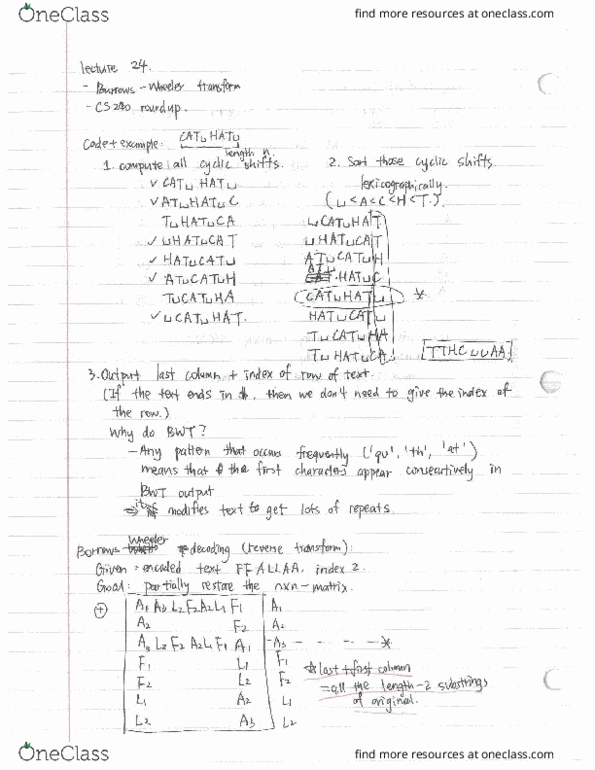 OneClass
find more resources at oneclass.com
lecture 24.
- Burrows - Wheeler transform
- CS240 roundup.
Code + example: CAT␣HAT␣
length n.
1. compute all cyclic shifts.
✓ CAT␣HAT␣
✓ AT␣HAT␣C
T␣HAT␣CA
✓ ␣HAT␣CAT
✓ HAT␣CAT␣
✓ AT␣CAT␣H
T␣CAT␣HA
✓ ␣CAT␣HAT
2. Sort those cyclic shifts
lexicographically.
(␣<A<C<H<T.)
␣CAT␣HAT
␣HAT␣CAT
AT␣CAT␣H
AT␣HAT␣C
CAT␣HAT␣ *
HAT␣CAT␣
T␣CAT␣HA
T␣HAT␣CA
TTHC␣␣AA
3. Output last column + index of row of text.
(If the text ends in $, then we don't need to give the index of
the row.)
Why do BWT?
- Any pattern that occurs frequently ('qu', 'th', 'at')
means that the first characters appear consecutively in
BWT output
⇒ it modifies text to get lots of repeats.
Borrows Wheeler decoding (reverse transform):
Given: encoded text FFALLAA, index 2.
Goal: partially restore the nxn-matrix.
A1 A3 L2 F2 A2 L1 F1 A1
A2 F2 A2
A3 L2 F2 A2 L1 F1 A1 -A3 - - - - *
F1 L1 F1
F2 L2 F2
L1 A2 L1
L2 A3 L2
* last + first column
= all the length-2 substrings
of original.
OneClass
find more resources at oneclass.com